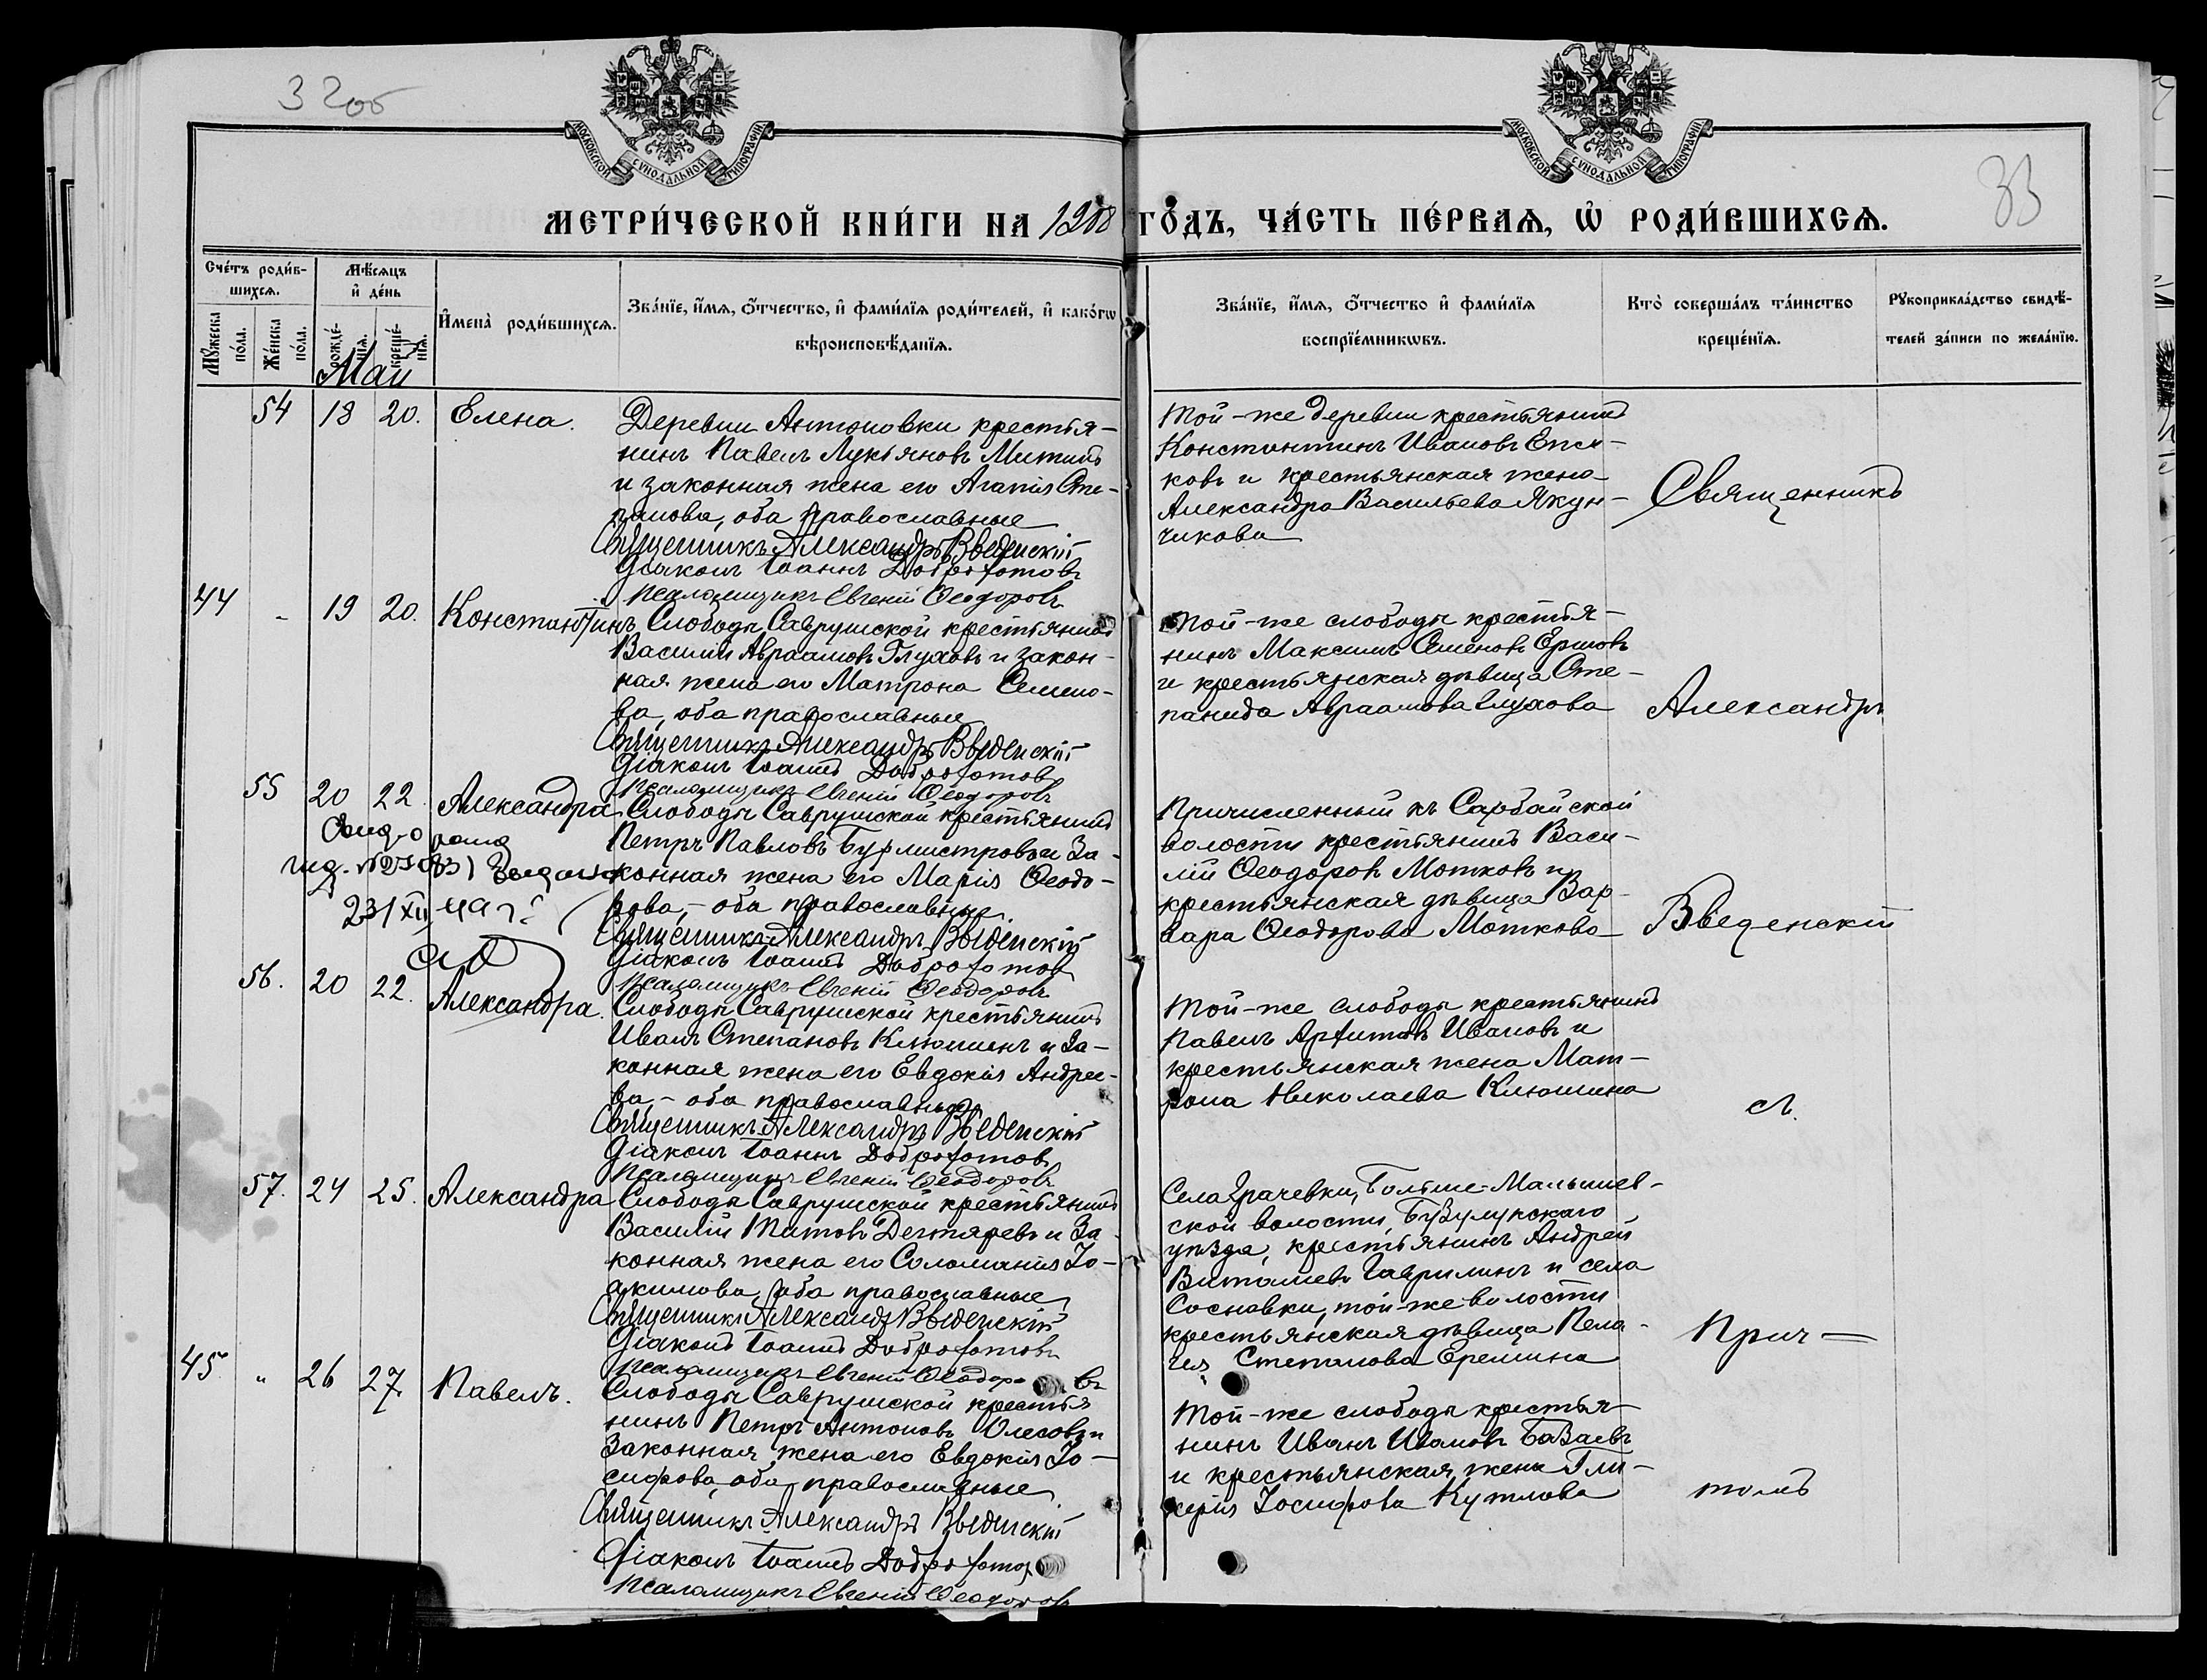 32об
МОСКОВСКОЙ СѴНОДАЛЬНОЙ ТИПОГРАФІИ
МОСКОВСКОЙ СѴНОДАЛЬНОЙ ТИПОГРАФІИ
33
МЕТРИ́ЧЕСКОЙ КНИ́ГИ НА 1908 ГО́ДЪ, ЧА́СТЬ ПЕ́РВАѦ, Ѡ҆ РОДИ́ВШИХСѦ.
Сче́тъ роди́в-
шихсѧ.
Мꙋ́жеска по́ла.
Же́нска по́ла.
Мѣ́сѧцъ
и҆ де́нь
рожде́-нїѧ.
креще́-нїѧ.
Май
И҆мена̀ роди́вшихсѧ.
Зва́нїе, и҆́мѧ, ѻ҆́тчество, и҆ фами́лїѧ роди́телей, и҆ како́гѡ
вѣроисповѣ́данїѧ.
Зва́нїе, и҆́мѧ, ѻ҆́тчество и҆ фами́лїѧ
воспрїе́мникѡвъ.
Кто̀ соверша́лъ та́инство
креще́нїѧ.
Рꙋкоприкла́дство свидѣ́-
телей за́писи по жела́нїю.
54 18 20. Елена.
Деревни Антоновки крестья-
нинъ Павелъ Лукьяновъ Митинъ
и законная жена его Агапія Сте-
панова, оба православные
Священникъ Александръ Введенскій
Діаконъ Іоаннъ Доброхотовъ
Псаломщикъ Евгеній Ѳеодоровъ
Той-же деревни крестьянинъ
Константинъ Ивановъ Епси-
ковъ и крестьянская жена
Александра Васильева Якун-
чикова
Священникъ
44 - 19 20. Константинъ
Слободы Саврушской крестьянинъ
Василій Авраамовъ Глуховъ и закон-
ная жена его Матрона Семено-
ва, оба православные
Священникъ Александръ Введенскій
Діаконъ Іоаннъ Доброхотовъ
Псаломщикъ Евгеній Ѳеодоровъ
Той-же слободы крестья-
нинъ Максимъ Семеновъ Ершовъ
и крестьянская дѣвица Сте-
панида Авраамова Глухова
Александръ
55 20 22. Александра
Слободы Саврушской крестьянинъ
Петръ Павловъ Бурмистровъ и за-
конная жена его Марія Ѳеодо-
рова, - оба православные.
Священникъ Александръ Введенскій
Діаконъ Іоаннъ Доброхотовъ
Псаломщикъ Евгеній Ѳеодоровъ
23/XII
Причисленный къ Сарбайской
волости крестьянинъ Васи-
лій Ѳеодоровъ Мотковъ и
крестьянская дѣвица Вар-
вара Ѳеодорова Моткова
Введенскій
56. 20 22. Александра.
Слободы Саврушской крестьянинъ
Иванъ Степановъ Клюшинъ и за-
конная жена его Евдокія Андрее-
ва, - оба православные
Священникъ Александръ Введенскій
Діаконъ Іоаннъ Доброхотовъ
Псаломщикъ Евгеній Ѳеодоровъ
Той-же слободы крестьянинъ
Павелъ Ивановъ и
крестьянская жена Мат-
рона Николаева Клюшина
съ
57. 24 25. Александра
Слободы Саврушской крестьянинъ
Василій Титовъ Дегтяревъ и за-
конная жена его Соломанія Іо-
акимова, оба православные
Священникъ Александръ Введенскій
Діаконъ Іоаннъ Доброхотовъ
Псаломщикъ Евгеній Ѳеодоровъ
Села Грачевки, Больше-Малышев-
ской волости, Бузулукскаго
уѣзда, крестьянинъ Андрей
Виталіевъ Гаврилинъ и села
Сосновки, той-же волости
крестьянская дѣвица Пела-
гея Степанова Еремина
Прич-
45 " 26 27. Павелъ.
Слободы Саврушской крестья
нинъ Петръ Антоновъ Олесовъ и
законная жена его Евдокія Іо-
сифова, оба православные
Священникъ Александръ Введенскій
Діаконъ Іоаннъ Доброхотов
Псаломщикъ Евгеній Ѳеодоровъ
Той-же слободы крестья-
нинъ Иванъ Ивановъ Базаевъ
и крестьянская жена Гли-
керія Іосифова Кутлова
томъ